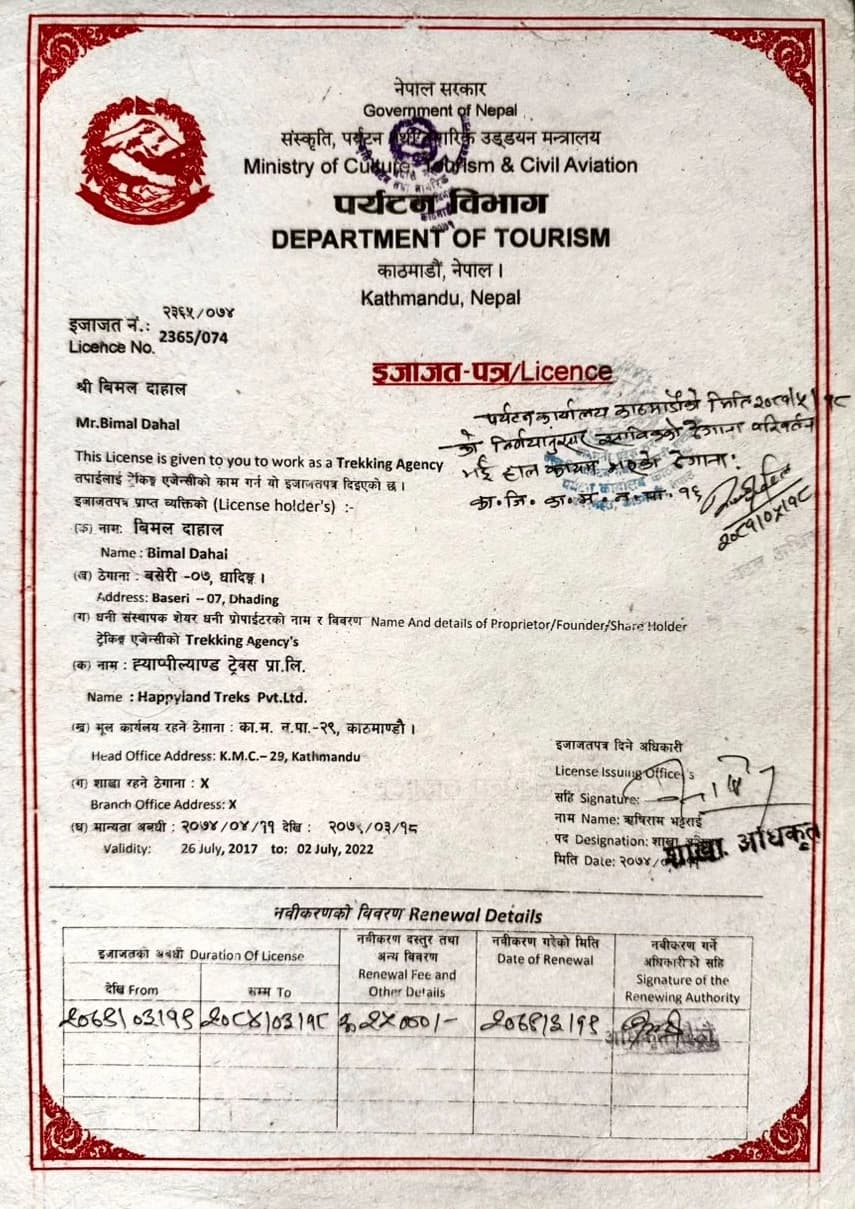 नेपाल सरकार
Government of Nepal
संस्कृति, पर्यटन तथा नागरिक उड्डयन मन्त्रालय
Ministry of Culture, Tourism & Civil Aviation
पर्यटन विभाग
DEPARTMENT OF TOURISM
काठमाडौं, नेपाल ।
Kathmandu, Nepal
इजाजत नं.: २३६५/०७४
Licence No. 2365/074
इजाजत-पत्र/Licence
श्री बिमल दाहाल
Mr.Bimal Dahal
पर्यटन कार्यालय काठमाडौंको मिति २०८१/५/१८
को निर्णयानुसार साविकको ठेगाना परिवर्तन
भई हाल कायम भएको ठेगाना:
का.जि. का.म.न.पा. १६
२०८१/०५/१८
This License is given to you to work as a Trekking Agency
तपाईलाई ट्रेकिङ्ग एजेन्सीको काम गर्न यो इजाजतपत्र दिइएको छ ।
इजाजतपत्र प्राप्त व्यक्तिको (License holder's) :-
(क) नामः बिमल दाहाल
Name : Bimal Dahal
(ख) ठेगाना : बसेरी -०७, धादिङ्ग ।
Address: Baseri – 07, Dhading
(ग) धनी संस्थापक शेयर धनी प्रोपाईटरको नाम र बिबरण Name And details of Proprietor/Founder/Share Holder
ट्रेकिङ्ग एजेन्सीको Trekking Agency's
(क) नाम : ह्याप्पील्याण्ड ट्रेक्स प्रा.लि.
Name : Happyland Treks Pvt.Ltd.
(ख) मूल कार्यलय रहने ठेगाना : का.म. न.पा.-२९, काठमाण्डौ ।
Head Office Address: K.M.C.– 29, Kathmandu
(ग) शाखा रहने ठेगाना : X
Branch Office Address: X
(घ) मान्यता अबधी : २०७४/०४/११ देखि : २०७९/०३/१८
Validity: 26 July, 2017 to: 02 July, 2022
इजाजतपत्र दिने अधिकारी
License Issuing Office's
सहि Signature:
नाम Name: ऋषिराम भट्टराई
पद Designation: शाखा
मिति Date: २०७४/
शाखा अधिकृत
नवीकरणको विवरण Renewal Details
इजाजतको अबधी Duration Of License
देखि From
सम्म To
नवीकरण दस्तुर तथा
अन्य विवरण
Renewal Fee and
Other Details
नवीकरण गरेको मिति
Date of Renewal
नवीकरण गर्ने
अधिकारीको सहि
Signature of the
Renewing Authority
२०७९/०३/१९ २०८४/०३/१८ रू २५०००/- २०७९/३/१९